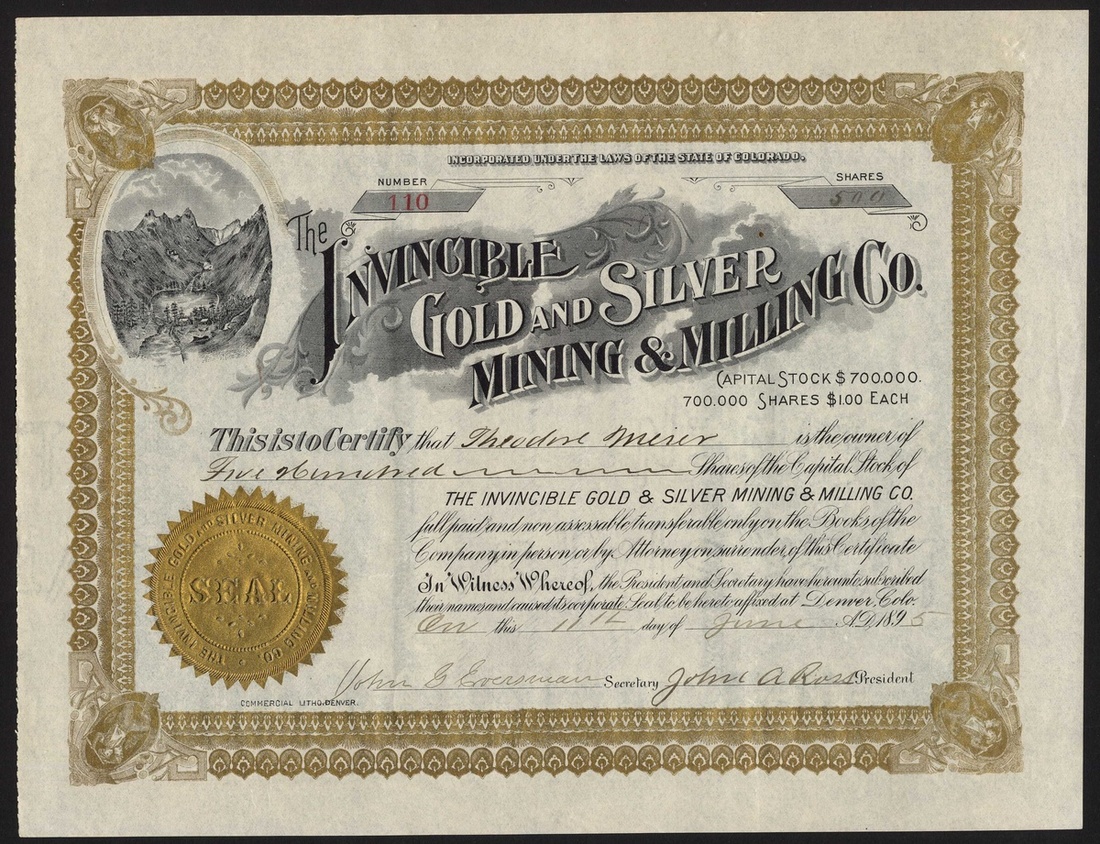 INCORPORATED UNDER THE LAWS OF THE STATE OF COLORADO.
NUMBER
110
SHARES
500
The INVINCIBLE
GOLD AND SILVER
MINING & MILLING CO.
CAPITAL STOCK $700.000.
700.000 SHARES $1.00 EACH
This is to Certify, that Theodore Meier is the owner of
Five Hundred Shares of the Capital Stock of
THE INVINCIBLE GOLD & SILVER MINING & MILLING CO.
full paid and non assessable, transferable only on the Books of the
Company, in person, or by Attorney on surrender of this Certificate
In Witness Whereof, the President and Secretary have hereunto subscribed
their names and caused its corporate Seal to be hereto affixed at Denver, Colo.
On this 11th day of June A.D. 1895
John G Eversman Secretary John A Ross President
THE INVINCIBLE GOLD AND SILVER MINING AND MILLING CO.
SEAL
COMMERCIAL LITHO. DENVER.